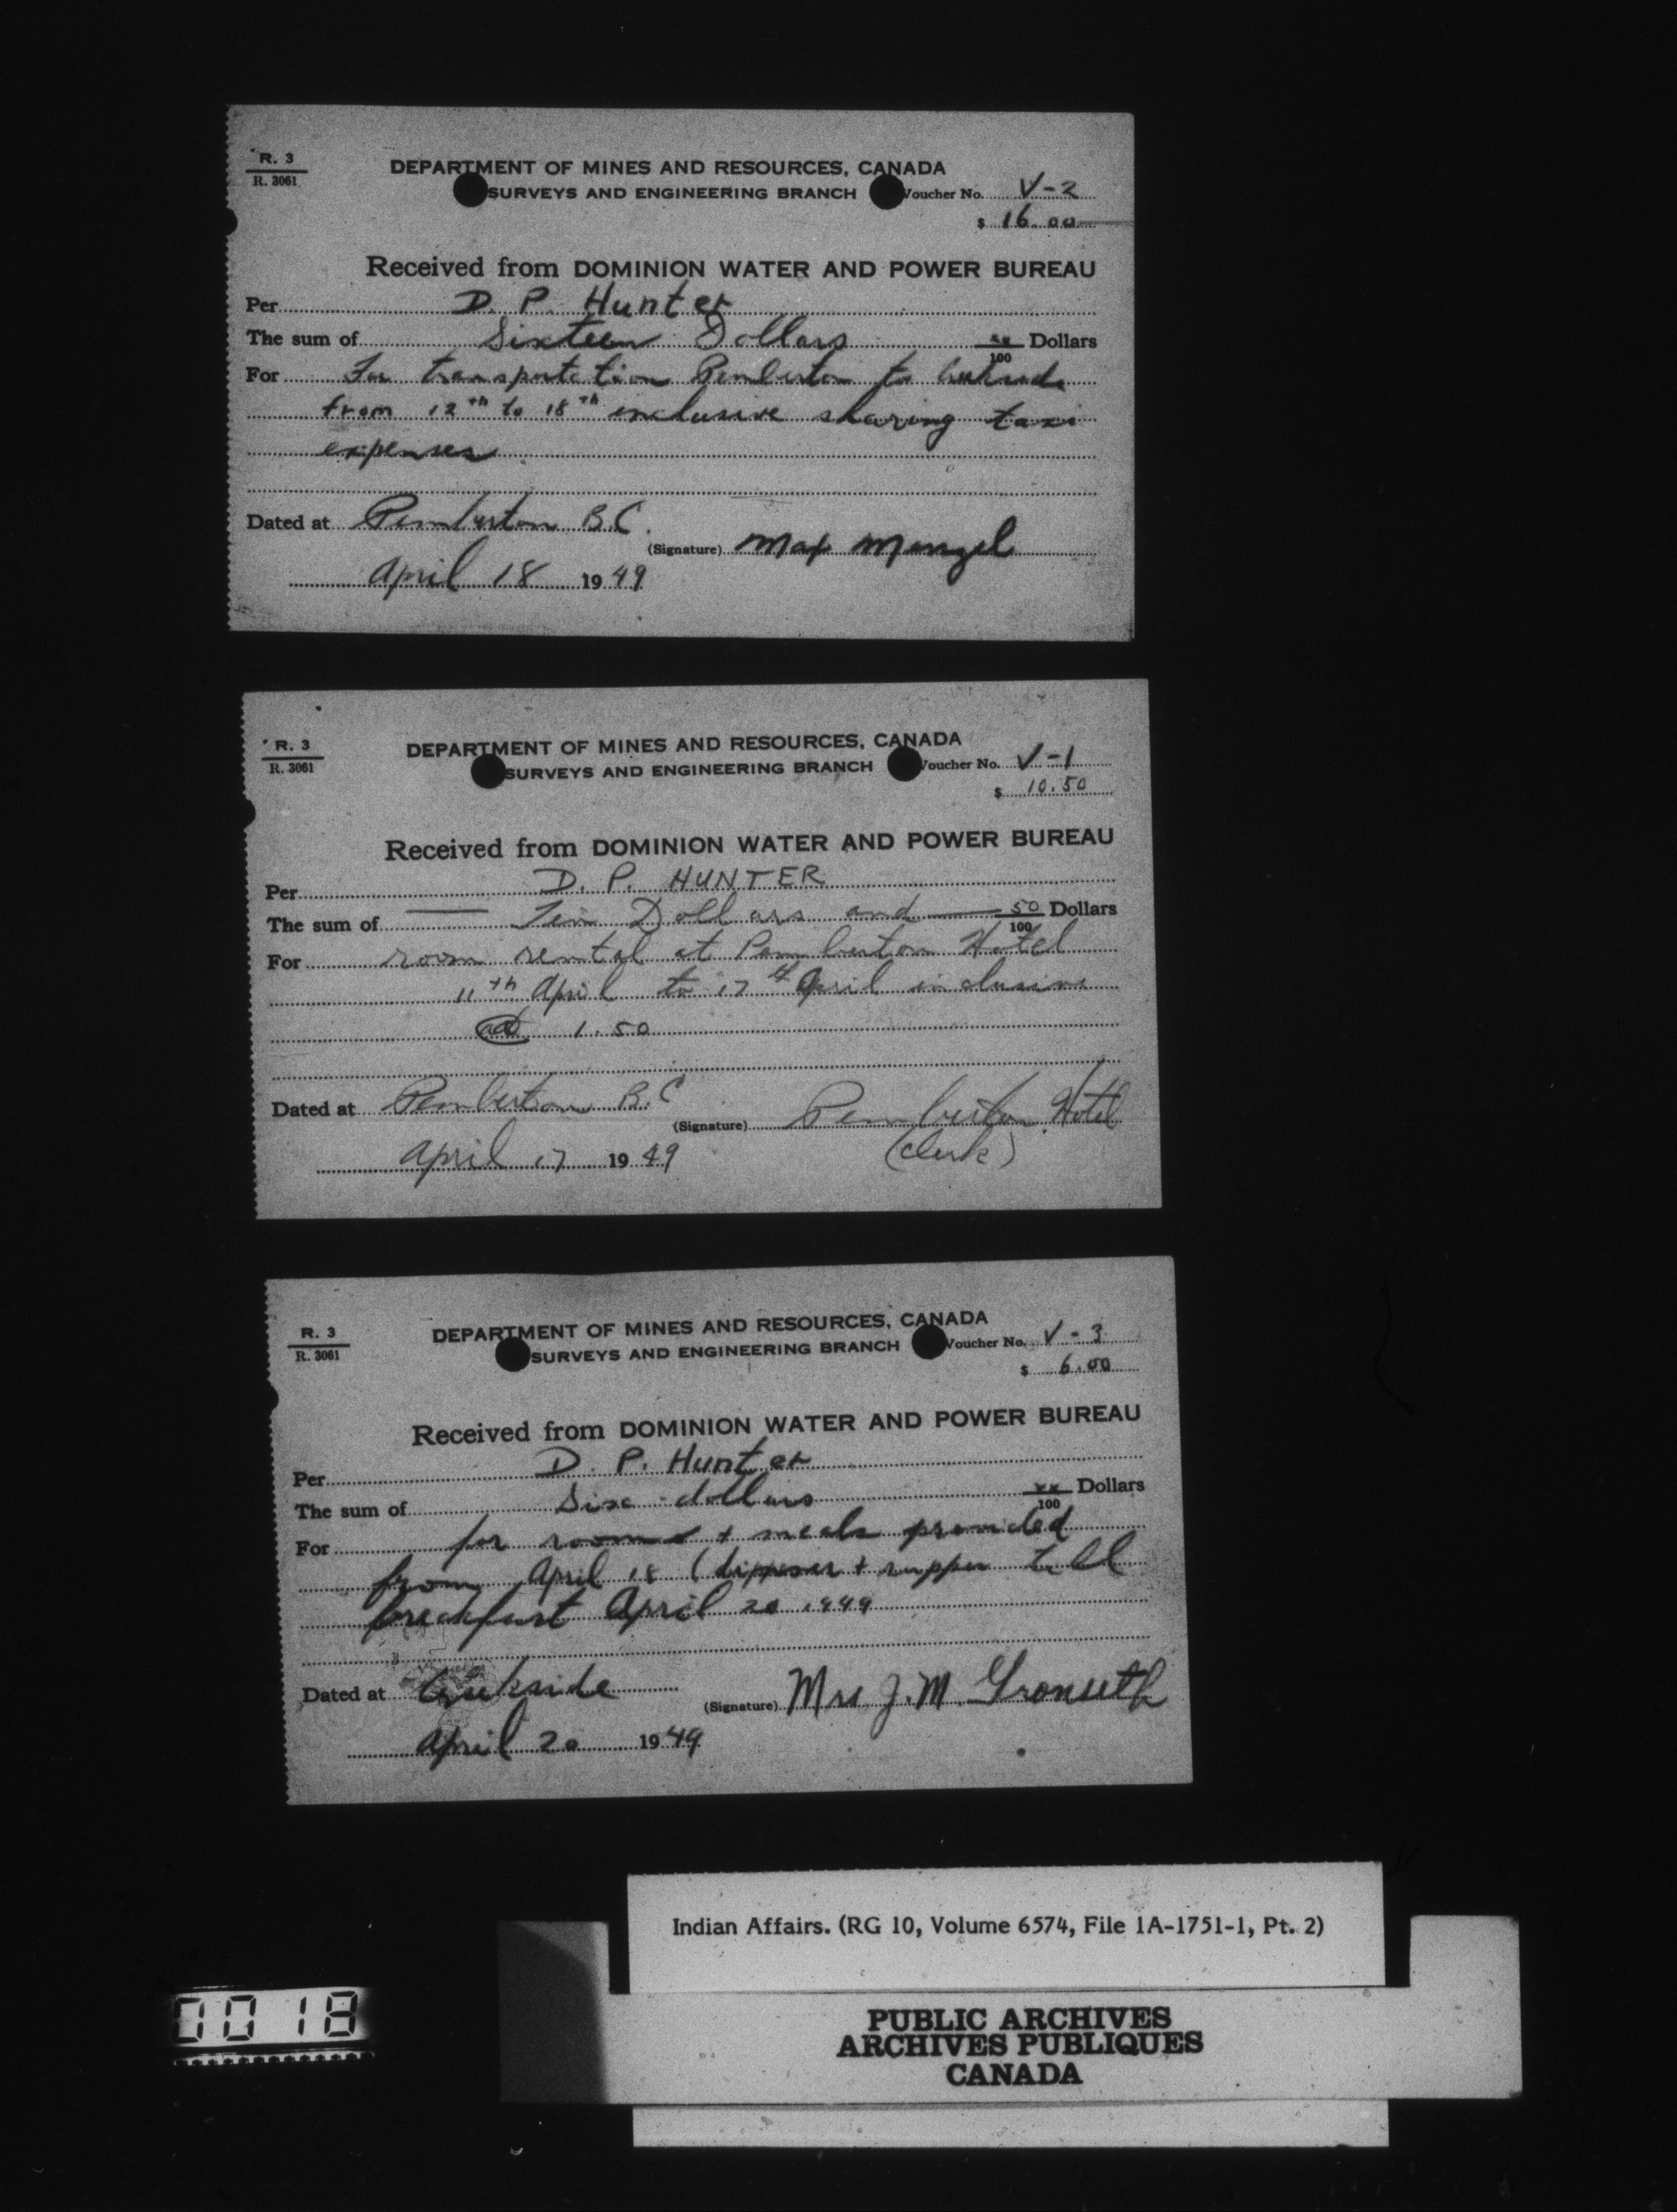 R. 3
R. 3061
DEPARTMENT OF MINES AND RESOURCES, CANADA
SURVEYS AND ENGINEERING BRANCH
Voucher No. V-2
$ 16.00
Received from DOMINION WATER AND POWER BUREAU
Per D. P. Hunter
The sum of Sixteen Dollars xx/100 Dollars
For For transportation Pemberton to
from 12th to 18th inclusive sharing taxi
expenses
Dated at Pemberton B.C.
(Signature) Max Menzel
April 18 1949
R. 3
R. 3061
DEPARTMENT OF MINES AND RESOURCES, CANADA
SURVEYS AND ENGINEERING BRANCH
Voucher No. V-1
$ 10.50
Received from DOMINION WATER AND POWER BUREAU
Per D. P. HUNTER
The sum of Ten Dollars and 50/100 Dollars
For room rental at Pemberton Hotel
11th April to 17th April inclusive
@ 1.50
Dated at Pemberton B.C
(Signature) Pemberton Hotel
(Clerk)
April 17 1949
R. 3
R. 3061
DEPARTMENT OF MINES AND RESOURCES, CANADA
SURVEYS AND ENGINEERING BRANCH
Voucher No. V-3
$ 6.00
Received from DOMINION WATER AND POWER BUREAU
Per D. P. Hunter
The sum of Six dollars xx/100 Dollars
For for room + meals provided
from April 18 (dinner + supper till
breakfast April 20 1949
Dated at Creekside
(Signature) Mrs J. M.
April 20 1949
Indian Affairs. (RG 10, Volume 6574, File 1A-1751-1, Pt. 2)
PUBLIC ARCHIVES
ARCHIVES PUBLIQUES
CANADA
0018